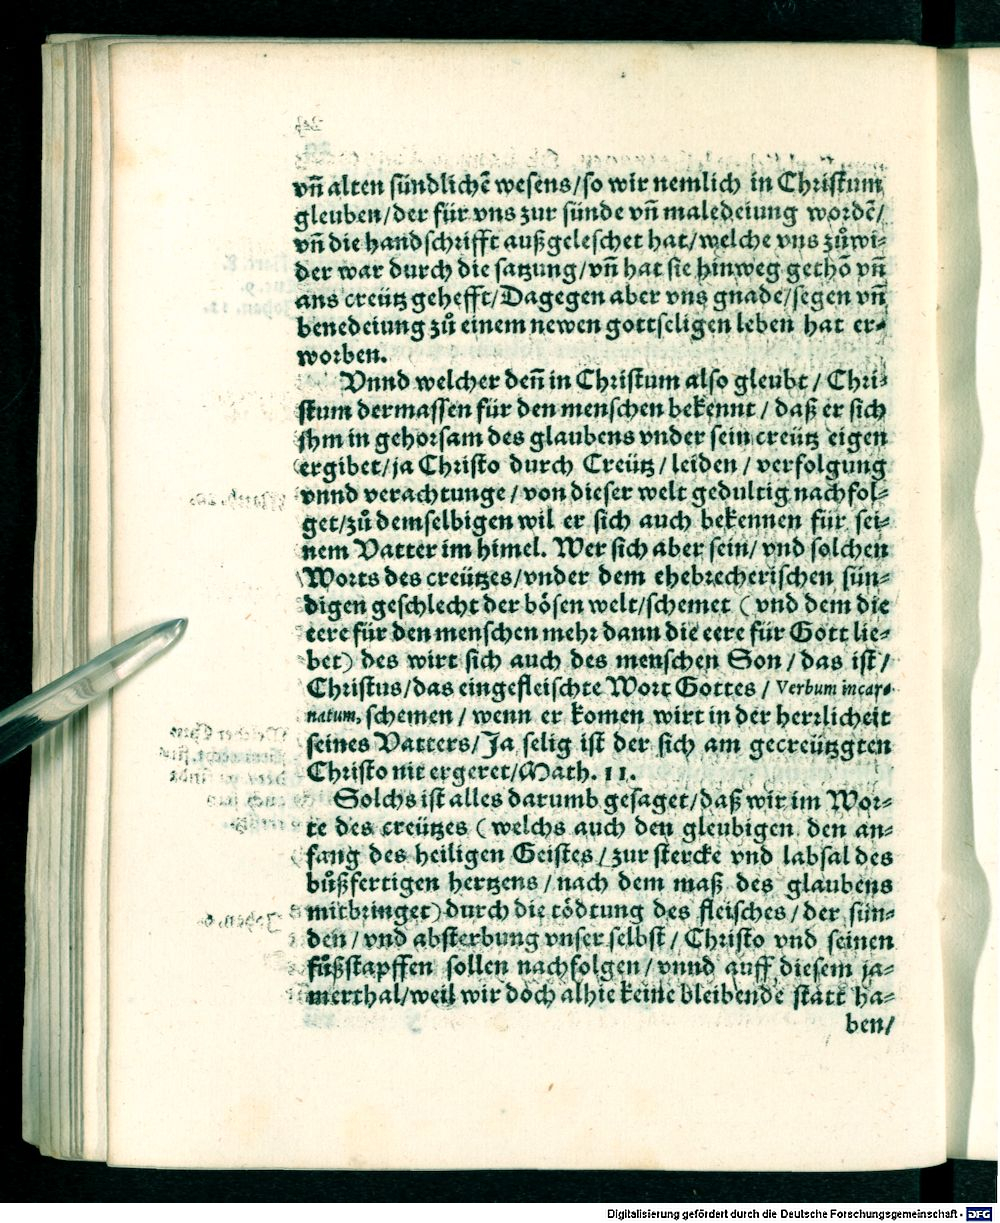 vñ alten sündlichẽ wesens/so wir nemlich in Christum
gleuben/der für vns zur sünde vñ maledeiung wordẽ/
vñ die handschrifft außgeleschet hat/welche vns zůwi-
der war durch die satzung/vñ hat sie hinweg gethõ vñ
ans creütz gehefft/Dagegen aber vns gnade/segen vñ
benedeiung zů einem newen gottseligen leben hat er-
worben.
Vnnd welcher deñ in Christum also gleubt/Chri-
stum dermassen für den menschen bekennt/daß er sich
jhm in gehorsam des glaubens vnder sein creütz eigen
ergibet/ja Christo durch Creütz/leiden/verfolgung
vnnd verachtunge/von dieser welt gedultig nachfol-
get/zů demselbigen wil er sich auch bekennen für sei-
nem Vatter im himel. Wer sich aber sein/vnd solchen
Worts des creützes/vnder dem ehebrecherischen sün-
digen geschlecht der bösen welt/schemet (vnd dem die
eere für den menschen mehr dann die eere für Gott lie-
bet) des wirt sich auch des menschen Son/das ist/
Christus/das eingefleischte Wort Gottes/Verbum incar-
natum, schemen/wenn er komen wirt in der herrlicheit
seines Vatters/Ja selig ist der sich am gecreützgten
Christo nit ergeret/Math. 11.
Solchs ist alles darumb gesaget/daß wir im Wor-
te des creützes (welchs auch den gleubigen den an-
fang des heiligen Geistes/zur stercke vnd labsal des
bůßfertigen hertzens/nach dem maß des glaubens
mitbringet) durch die tödtung des fleisches/der sün-
den/vnd absterbung vnser selbst/Christo vnd seinen
fůßstapffen sollen nachfolgen/vnnd auff diesem ja-
merthal/weil wir doch alhie keine bleibende statt ha-
ben/
Digitalisierung gefördert durch die Deutsche Forschungsgemeinschaft - DFG